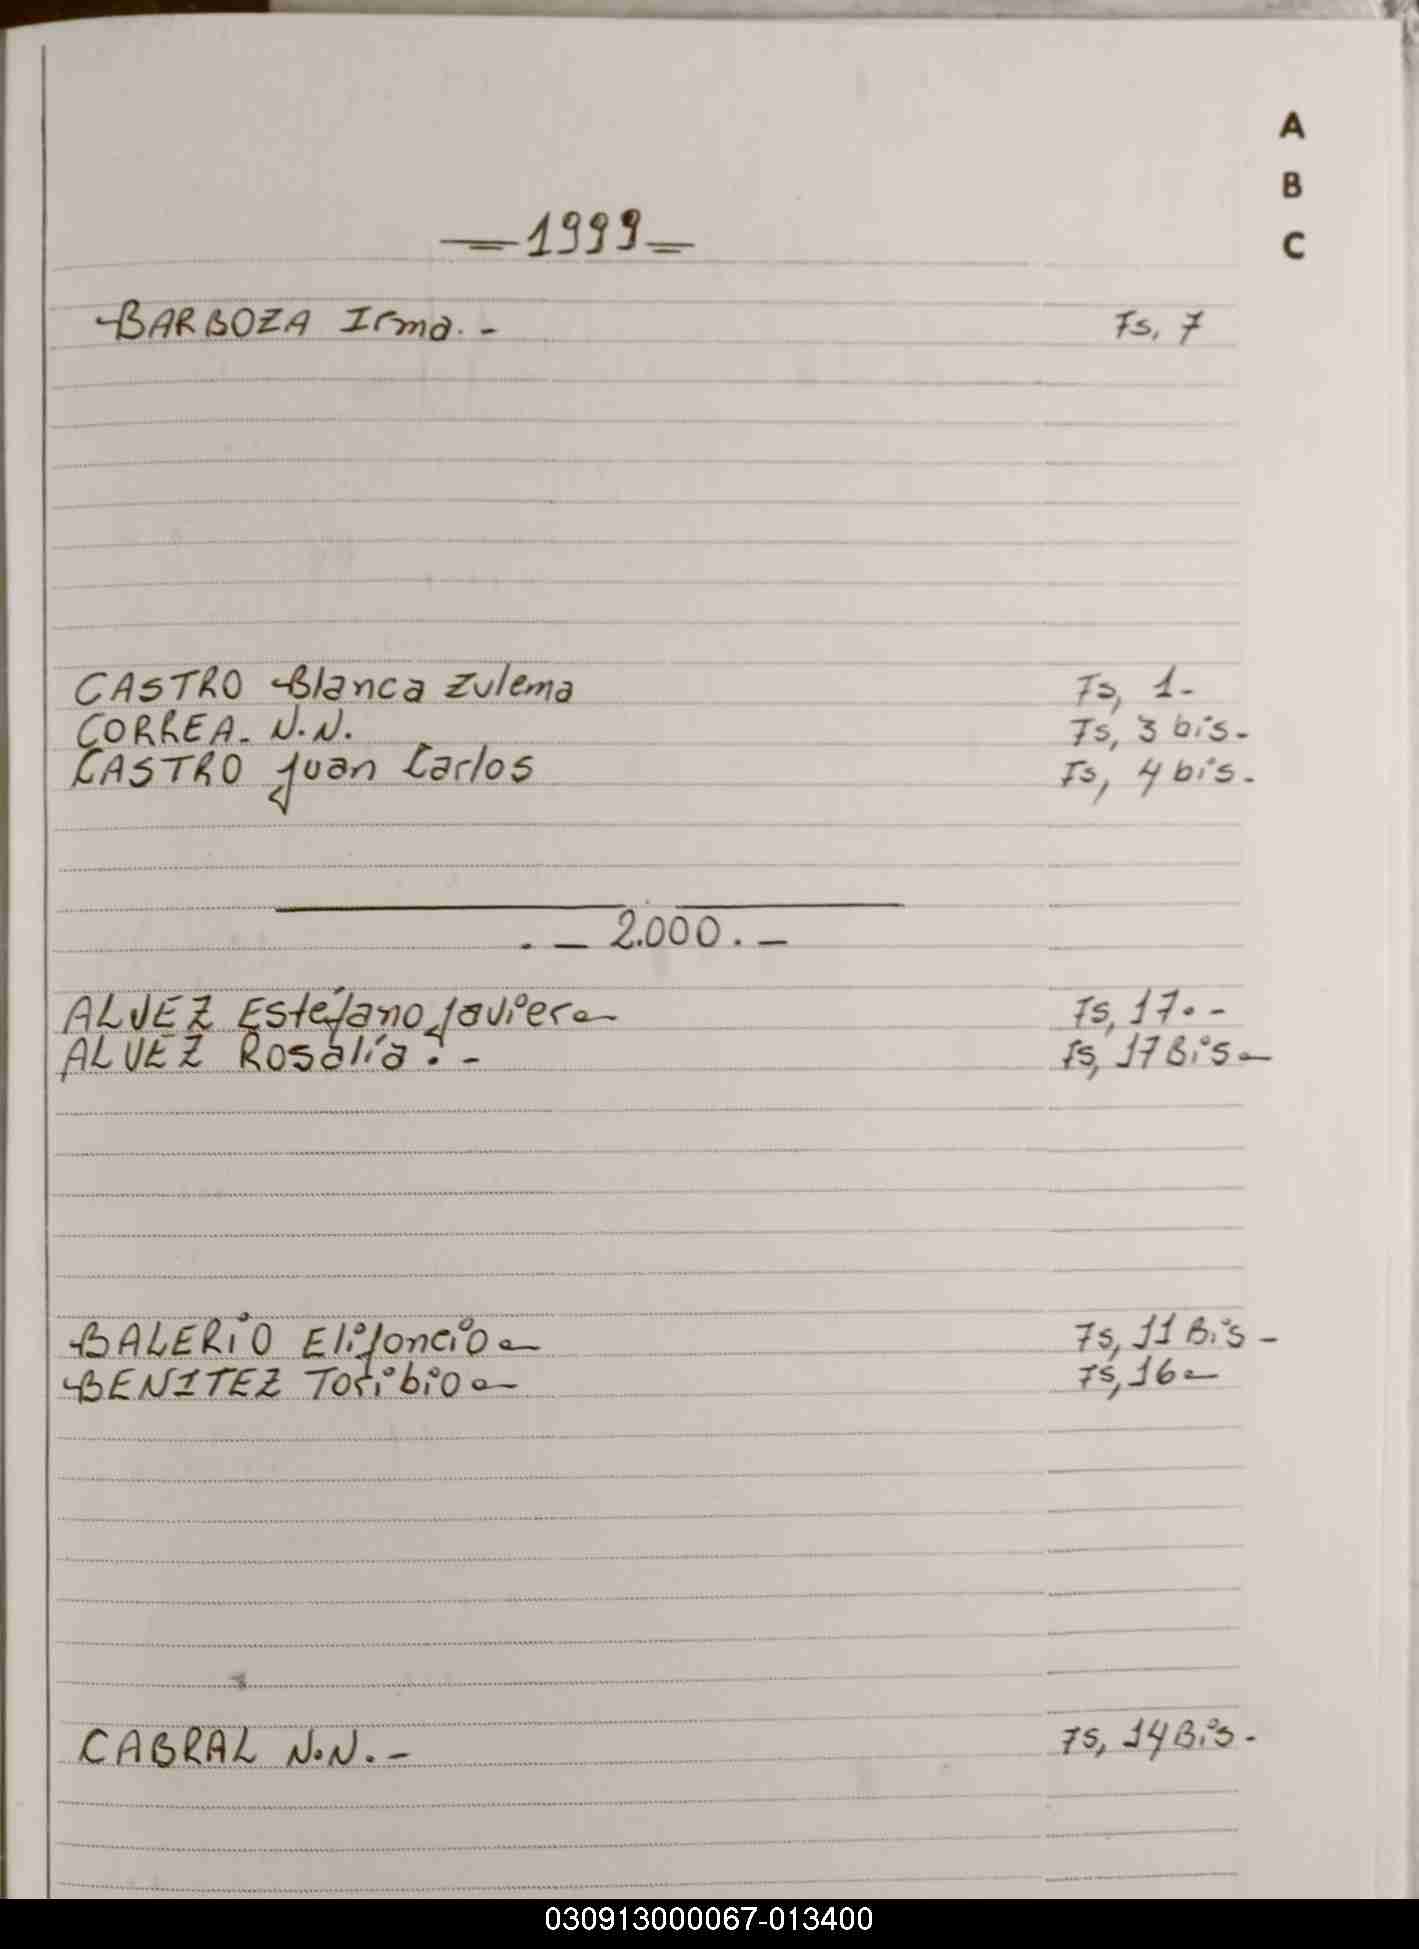 A
B
C
— 1999 —
BARBOZA Irma. - Fs, 7
CASTRO Blanca Zulema Fs, 1-
CORREA. N.N. Fs, 3 bis-
CASTRO Juan Carlos Fs, 4 bis-
. — 2.000 . —
ALVEZ Estéfano Javier.— Fs, 17.-
ALVEZ Rosalía. - Fs, 17 Bis.—
BALERiO Elifoncio.— Fs, 11 Bis -
BENITEZ Toribio.— Fs, 16.—
CABRAL N.N. - Fs, 14 Bis-
030913000067-013400